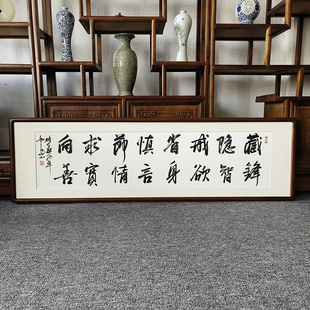 藏鋒
隐智
戒欲
省身
慎言
節情
求實
向善